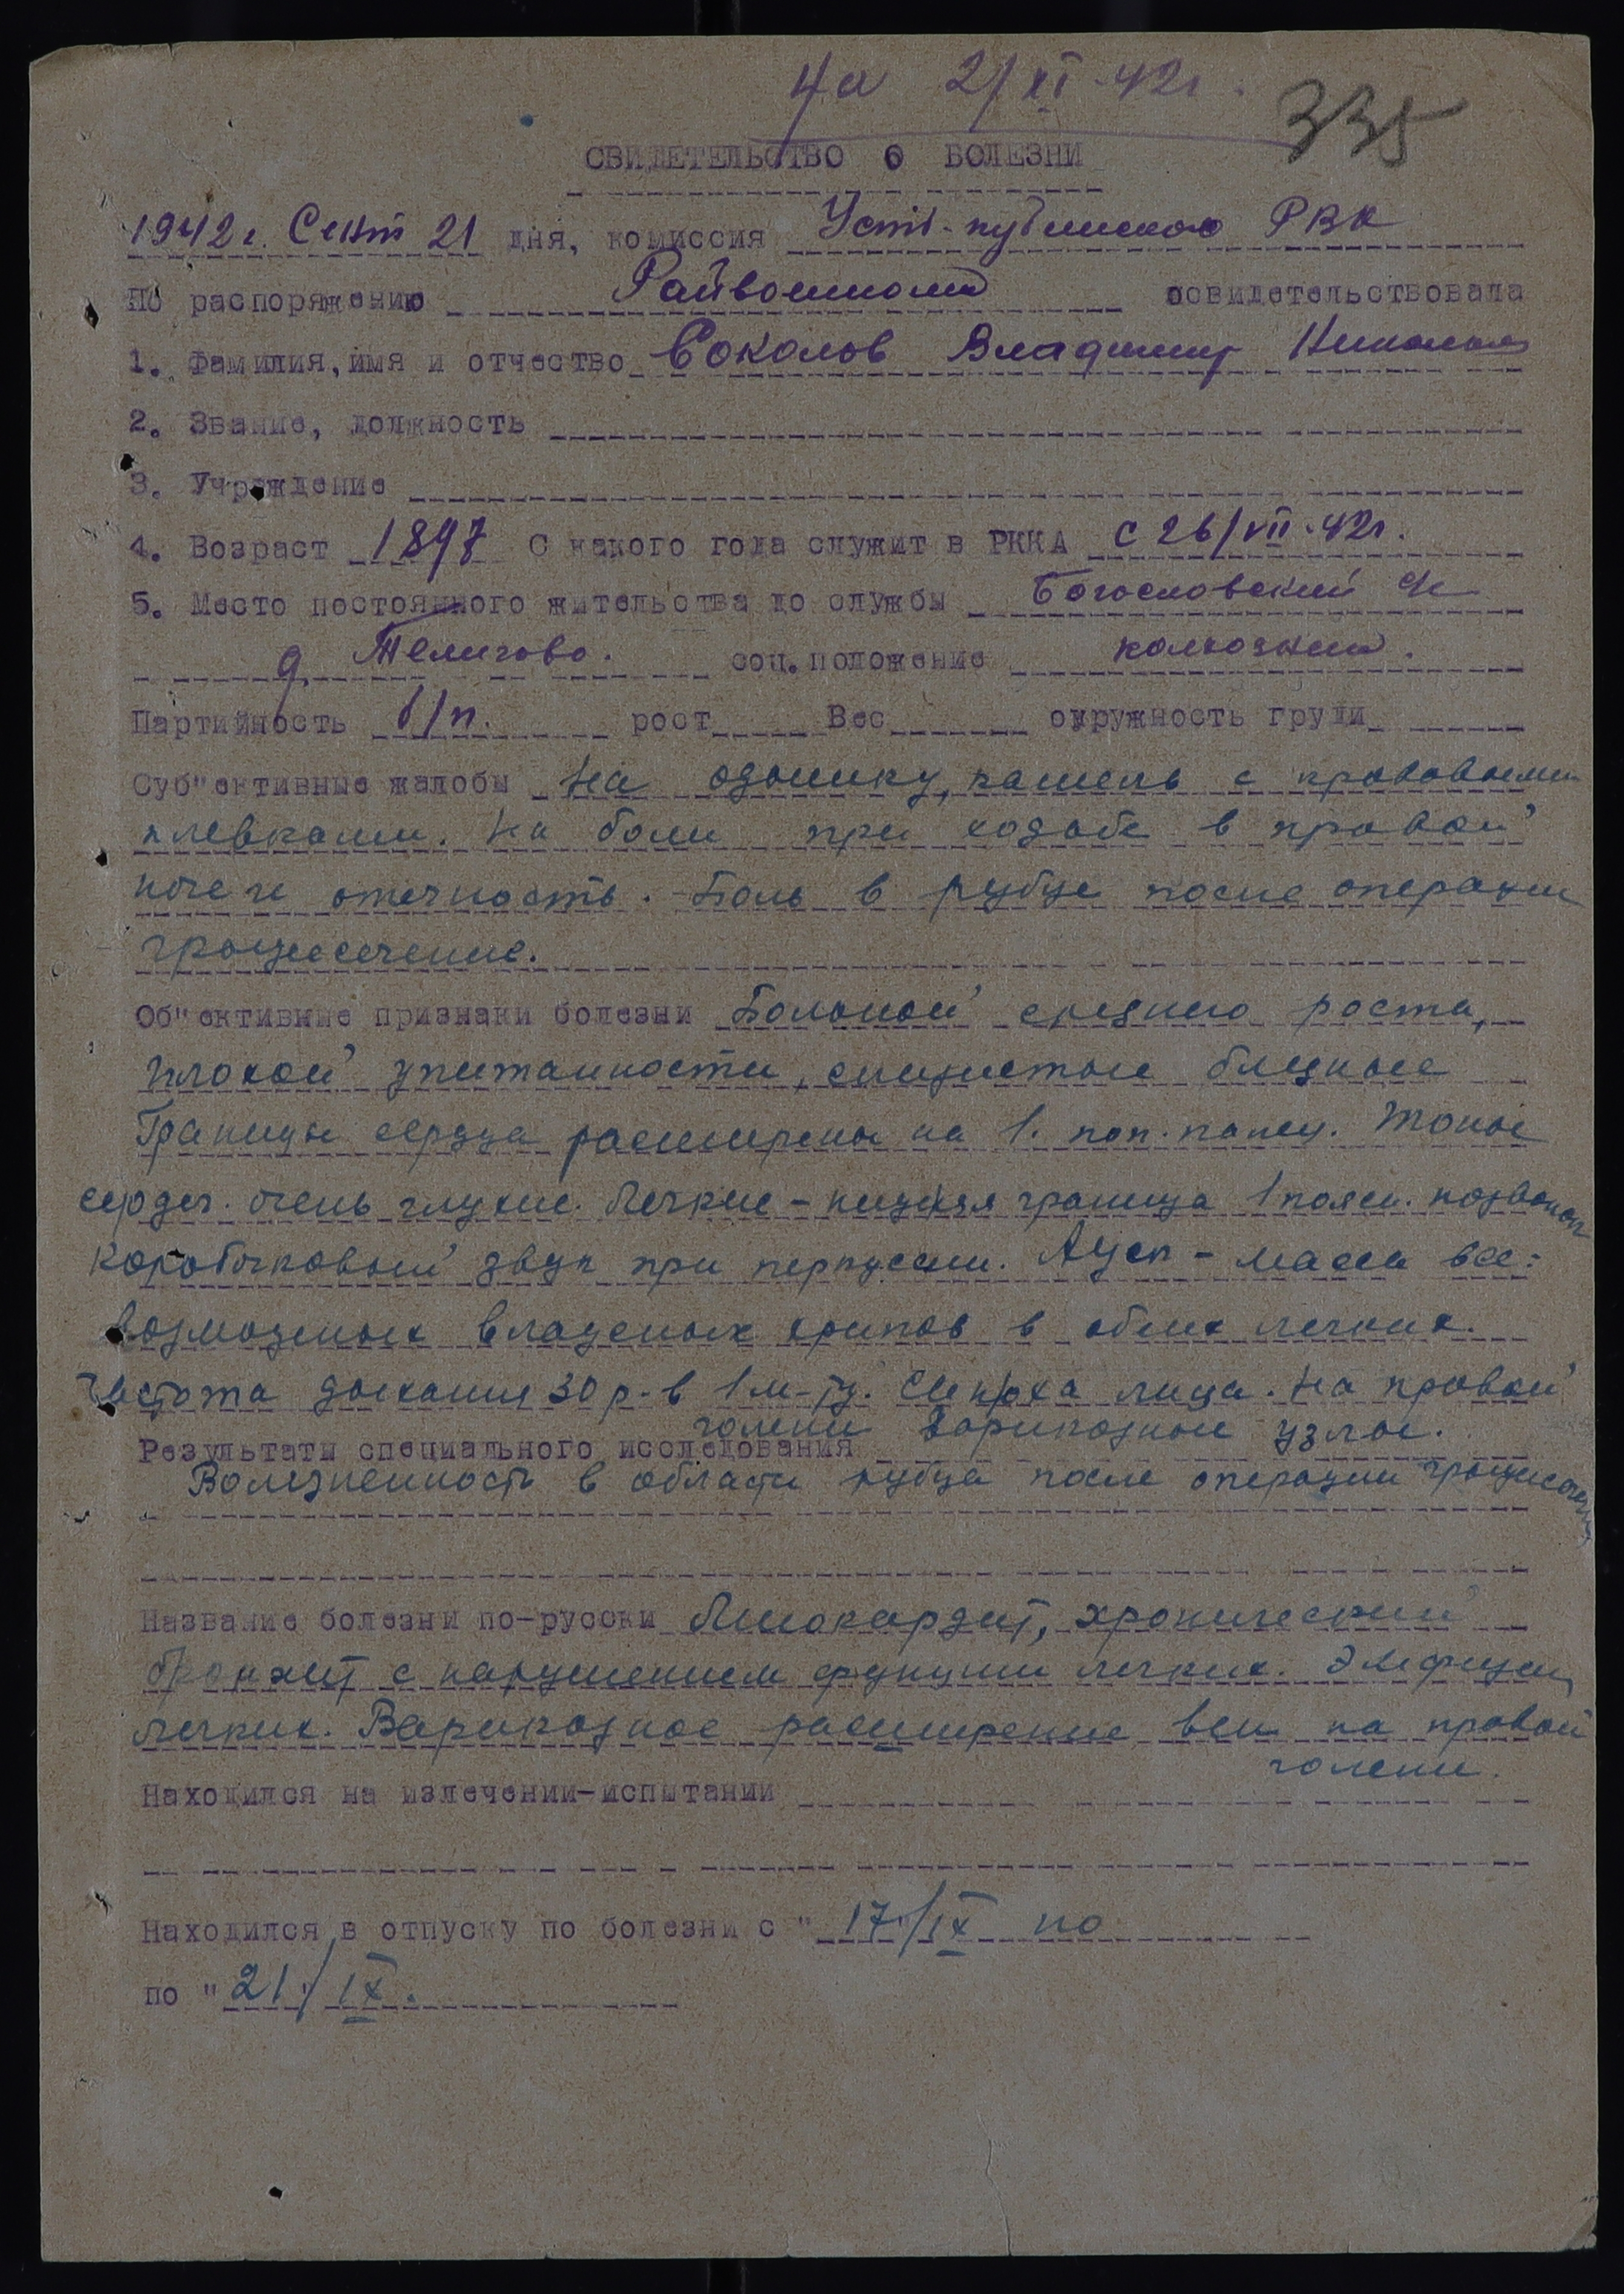 4а 2/XI-42г.
335
СВИДЕТЕЛЬСТВО О БОЛЕЗНИ
1942г. Сент 21 дня, комиссия Усть-кубинского РВК
По распоряжению Райвоенкома освидетельствовала
1. Фамилия, имя и отчество Соколов Владимир
2. Звание, должность
3. Учреждение
4. Возраст 1897 С какого года служит в РККА с 26/VII-42г.
5. Место постоянного жительства до службы Богословский
д. соц. положение колхозник.
Партийность б/п. рост Вес окружность груди
Суб"ективные жалобы На одышку, кашель с кровавыми
плевками. На боли при ходьбе в правой
ноге и отечность. Боль в рубце после операции
грыжесечение.
Об"ективные признаки болезни Больной среднего роста,
плохой упитанности, слизистые бледные
Границы сердца расширены на 1. поп. палец. Тоны
сердеч. очень глухие. Легкие - нижняя граница 1 поясн. позвонок
коробочковый звук при перкуссии. Аускл - масса все-
возможных влажных хрипов в обеих легких.
Частота дыхания 30 р. в 1 м-ту. Синюха лица. На правой
голени Варикозные узлы.
Результаты специального исследования
Болезненность в области рубца после операции грыжесечен
Название болезни по-русски Миокардит, хронический
бронхит с нарушением функции легких. Эмфизема
легких. Варикозное расширение вен на правой
голени.
Находился на излечении-испытании
Находился в отпуску по болезни с "17"/IX по
по "21"/IX.